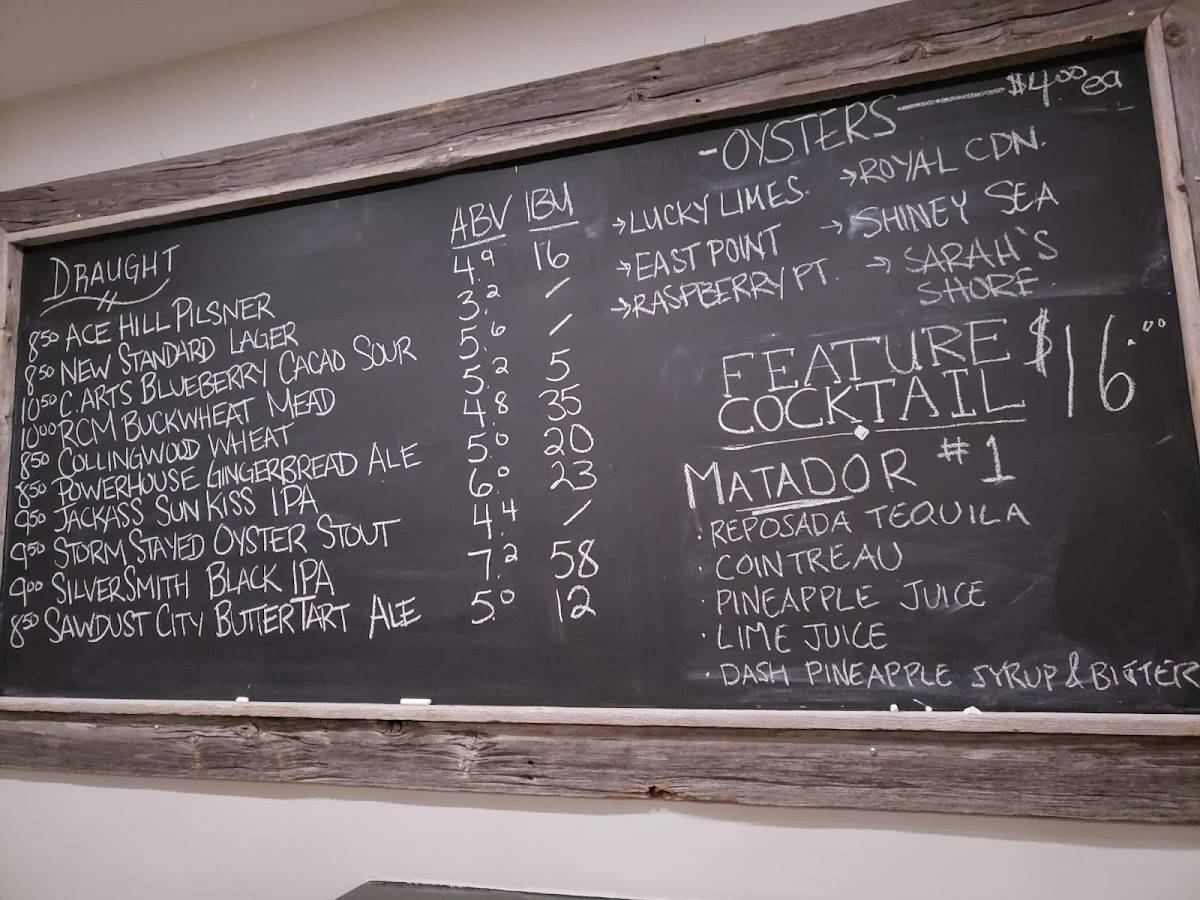 DRAUGHT ABV IBU
8.50 ACE HILL PILSNER 4.9 16
8.50 NEW STANDARD LAGER 3.2 /
10.50 C.ARTS BLUEBERRY CACAO SOUR 5.6 /
10.00 RCM BUCKWHEAT MEAD 5.2 5
8.50 COLLINGWOOD WHEAT 4.8 35
8.50 POWERHOUSE GINGERBREAD ALE 5.0 20
9.50 JACKASS SUN KISS IPA 6.0 23
9.50 STORM STAYED OYSTER STOUT 4.4 /
9.00 SILVERSMITH BLACK IPA 7.2 58
8.50 SAWDUST CITY BUTTERTART ALE 5.0 12
-OYSTERS— $4.00 ea
→LUCKY LIMES →ROYAL CDN.
→EAST POINT → SHINEY SEA
→RASPBERRY PT. → SARAH'S
SHORE
FEATURE $16.00
COCKTAIL
MATADOR #1
· REPOSADA TEQUILA
· COINTREAU
· PINEAPPLE JUICE
· LIME JUICE
· DASH PINEAPPLE SYRUP & BITTER